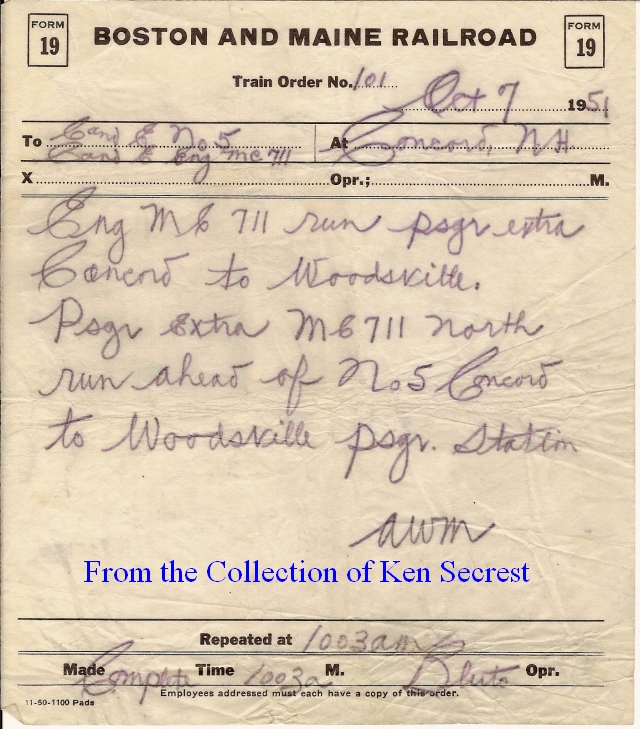 FORM 19
BOSTON AND MAINE RAILROAD
FORM 19
Train Order No. 101
Oct 7 1951
To C and E No 5 At Concord, NH
C and E Eng MC 711
X Opr.; M.
Eng MC 711 run psgr extra
Concord to Woodsville.
Psgr Extra MC 711 North
run ahead of No 5 Concord
to Woodsville psgr. Station
AWM
From the Collection of Ken Secrest
Repeated at 1003am
Made Complete Time 1003a M. Opr.
Employees addressed must each have a copy of this order.
11-50-1100 Pads